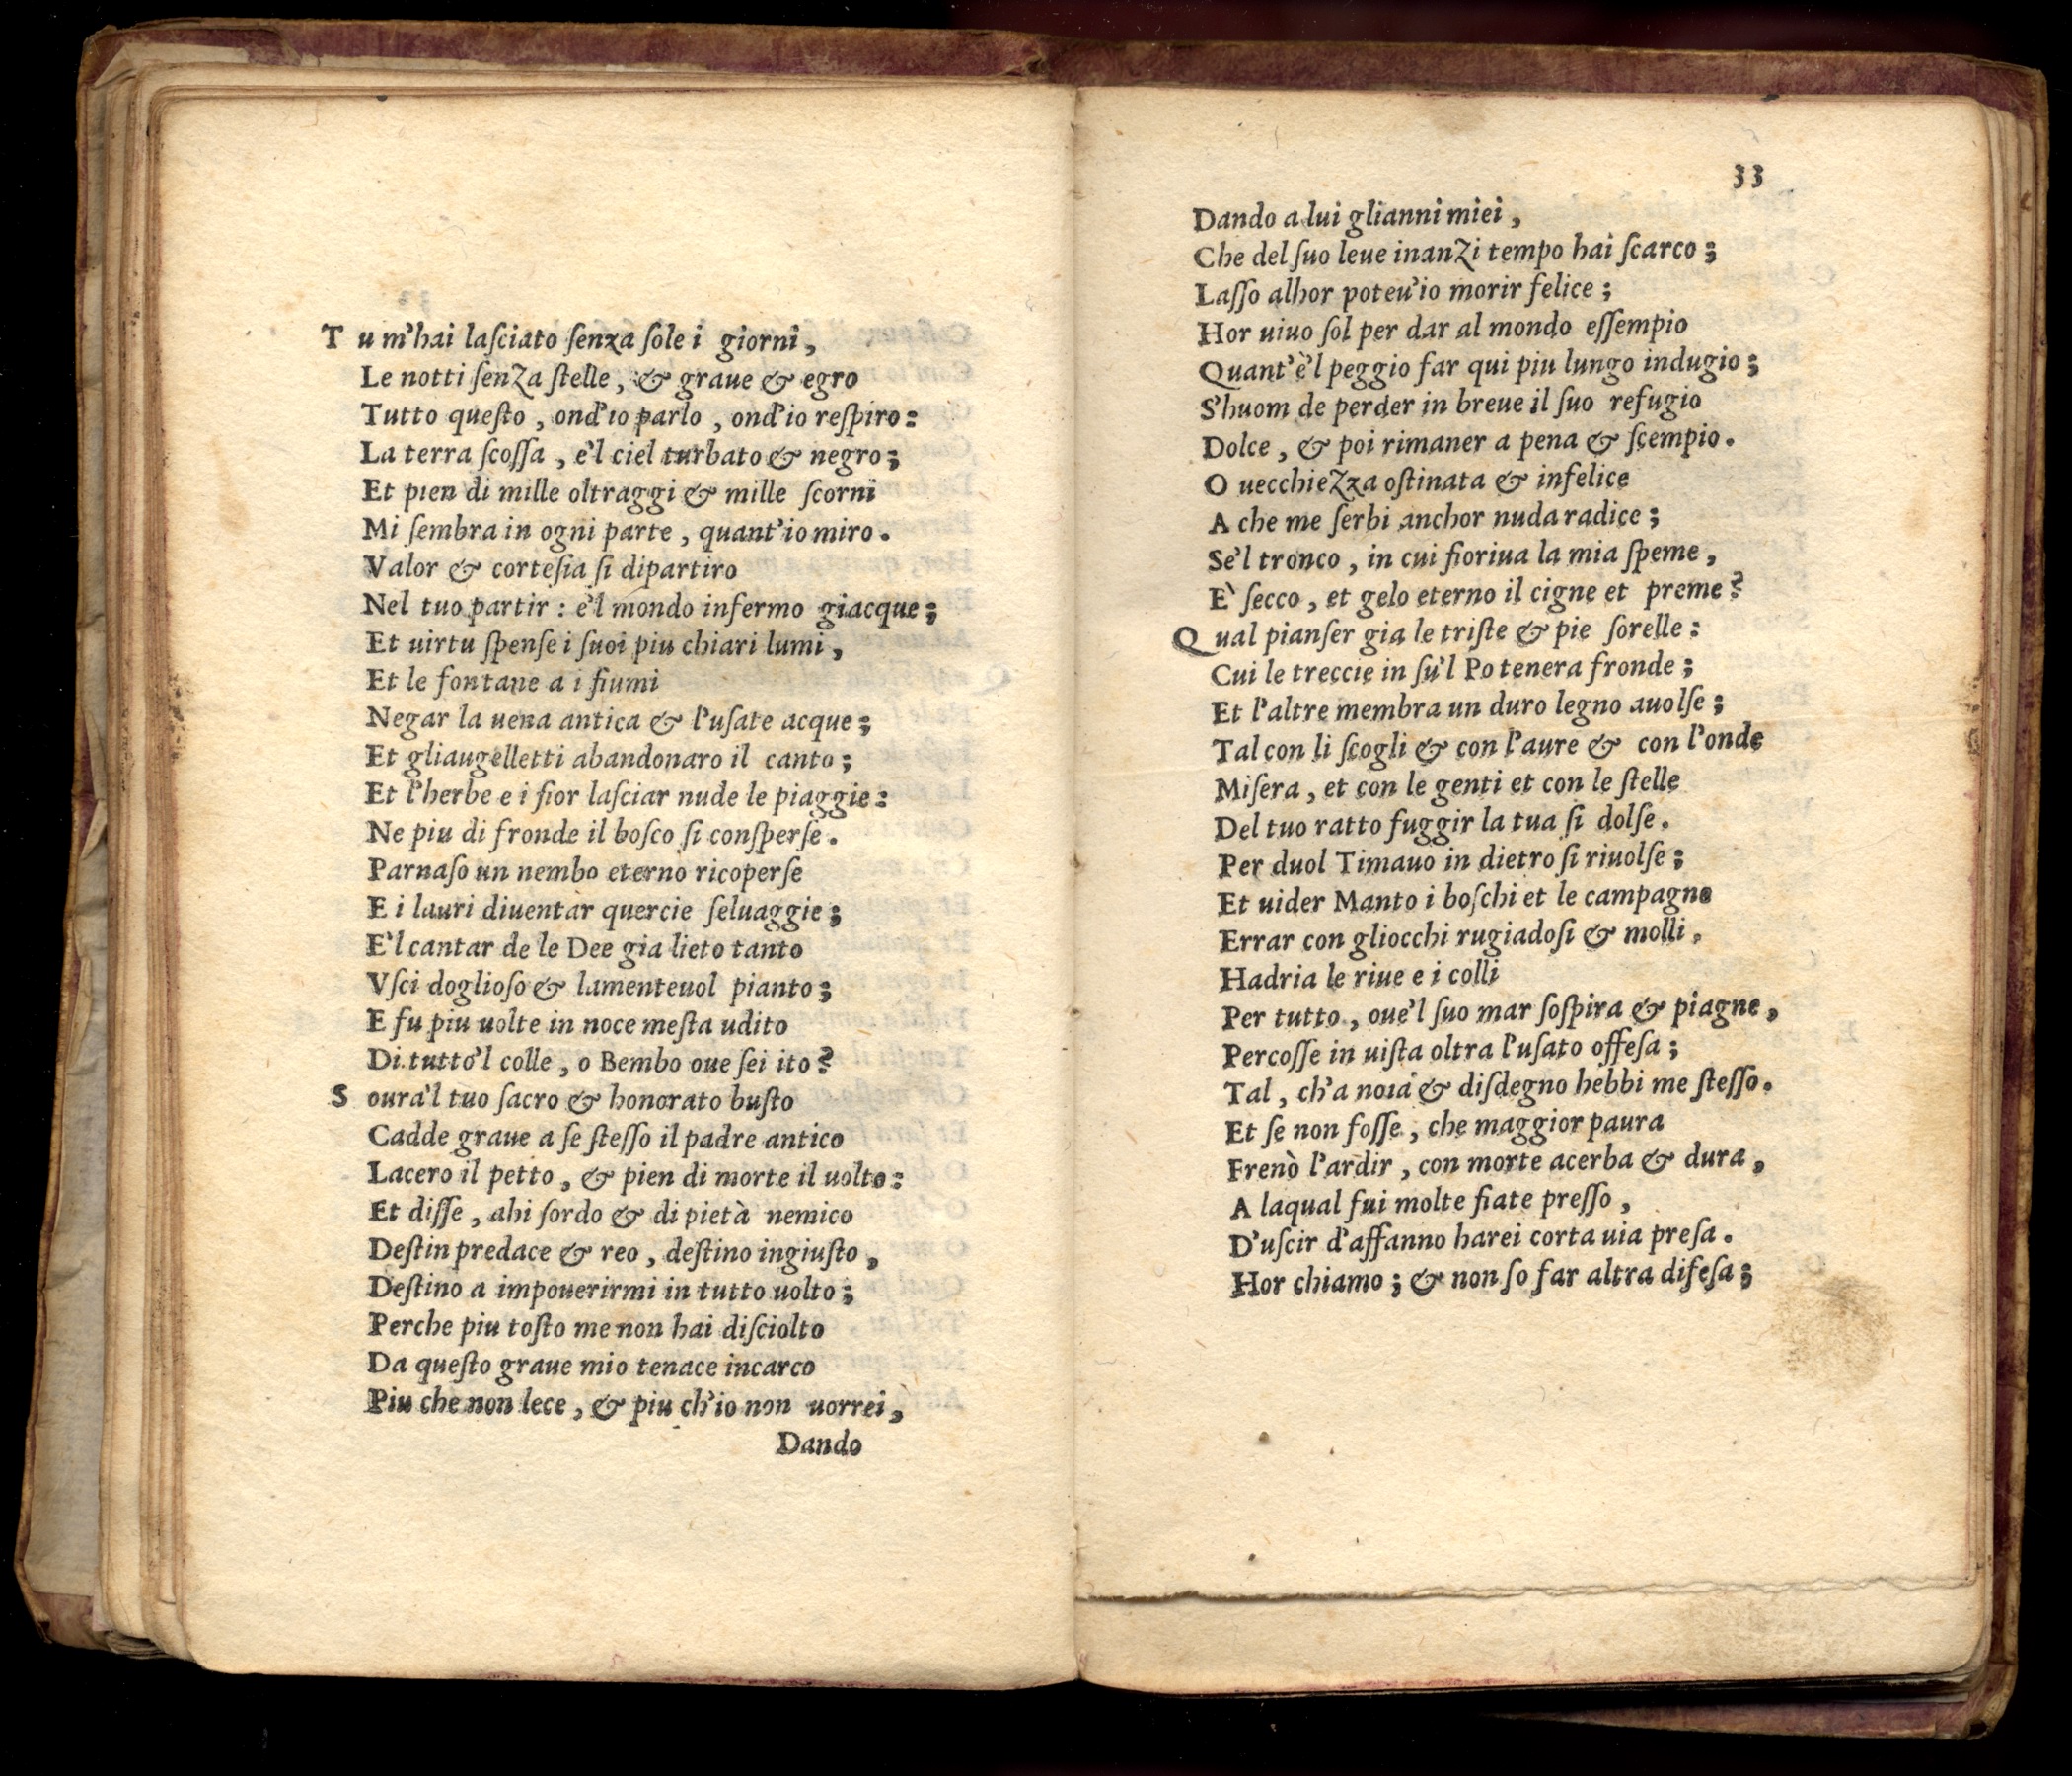 T u m'hai laſciato ſenza ſole i giorni,
Le notti ſenza ſtelle, & graue & egro
Tutto queſto, ond'io parlo, ond'io reſpiro:
La terra ſcoſſa, e'l ciel turbato & negro;
Et pien di mille oltraggi & mille ſcorni
Mi ſembra in ogni parte, quant'io miro.
Valor & corteſia ſi dipartiro
Nel tuo partir: e'l mondo infermo giacque;
Et uirtu ſpenſe i ſuoi piu chiari lumi,
Et le fontane a i fiumi
Negar la uena antica & l'uſate acque;
Et gliaugelletti abandonaro il canto;
Et l'herbe e i fior laſciar nude le piaggie:
Ne piu di fronde il boſco ſi conſperſe.
Parnaſo un nembo eterno ricoperſe
E i lauri diuentar quercie ſeluaggie;
E'l cantar de le Dee gia lieto tanto
Vſci doglioſo & lamenteuol pianto;
E fu piu uolte in noce meſta udito
Di tutto'l colle, o Bembo oue ſei ito?
S oura'l tuo ſacro & honorato buſto
Cadde graue a ſe ſteſſo il padre antico
Lacero il petto, & pien di morte il uolto:
Et diſſe, ahi ſordo & di pietà nemico
Deſtin predace & reo, deſtino ingiuſto,
Deſtino a impouerirmi in tutto uolto;
Perche piu toſto me non hai diſciolto
Da queſto graue mio tenace incarco
Piu che non lece, & piu ch'io non uorrei,
Dando
33
Dando a lui glianni miei,
Che del ſuo leue inanzi tempo hai ſcarco;
Laſſo alhor poteu'io morir felice;
Hor uiuo ſol per dar al mondo eſſempio
Quant'è'l peggio far qui piu lungo indugio;
S'huom de perder in breue il ſuo refugio
Dolce, & poi rimaner a pena & ſcempio.
O uecchiezza oſtinata & infelice
A che me ſerbi anchor nuda radice;
Se'l tronco, in cui fioriua la mia ſpeme,
E` ſecco, et gelo eterno il cigne et preme?
Q ual pianſer gia le triſte & pie ſorelle:
Cui le treccie in ſu'l Po tenera fronde;
Et l'altre membra un duro legno auolſe;
Tal con li ſcogli & con l'aure & con l'onde
Miſera, et con le genti et con le ſtelle
Del tuo ratto fuggir la tua ſi dolſe.
Per duol Timauo in dietro ſi riuolſe;
Et uider Manto i boſchi et le campagne
Errar con gliocchi rugiadoſi & molli,
Hadria le riue e i colli
Per tutto, oue'l ſuo mar ſoſpira & piagne,
Percoſſe in uiſta oltra l'uſato offeſa;
Tal, ch'a noia & diſdegno hebbi me ſteſſo.
Et ſe non foſſe, che maggior paura
Frenò l'ardir, con morte acerba & dura,
A laqual fui molte fiate preſſo,
D'uſcir d'affanno harei corta uia preſa.
Hor chiamo; & non ſo far altra difeſa;